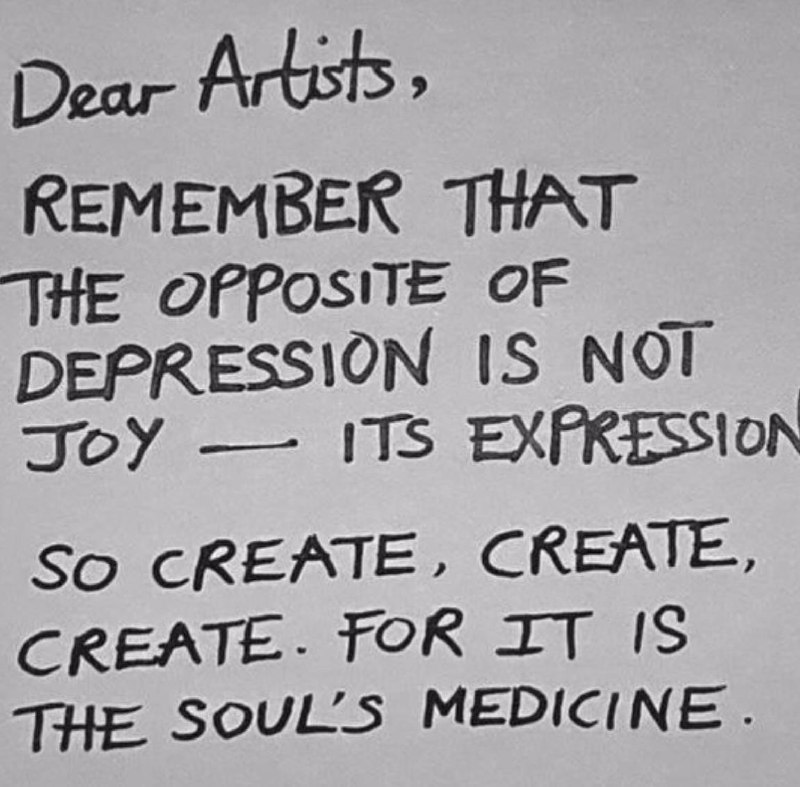 Dear Artists,
REMEMBER THAT
THE OPPOSITE OF
DEPRESSION IS NOT
JOY — ITS EXPRESSION
SO CREATE, CREATE,
CREATE. FOR IT IS
THE SOUL'S MEDICINE.